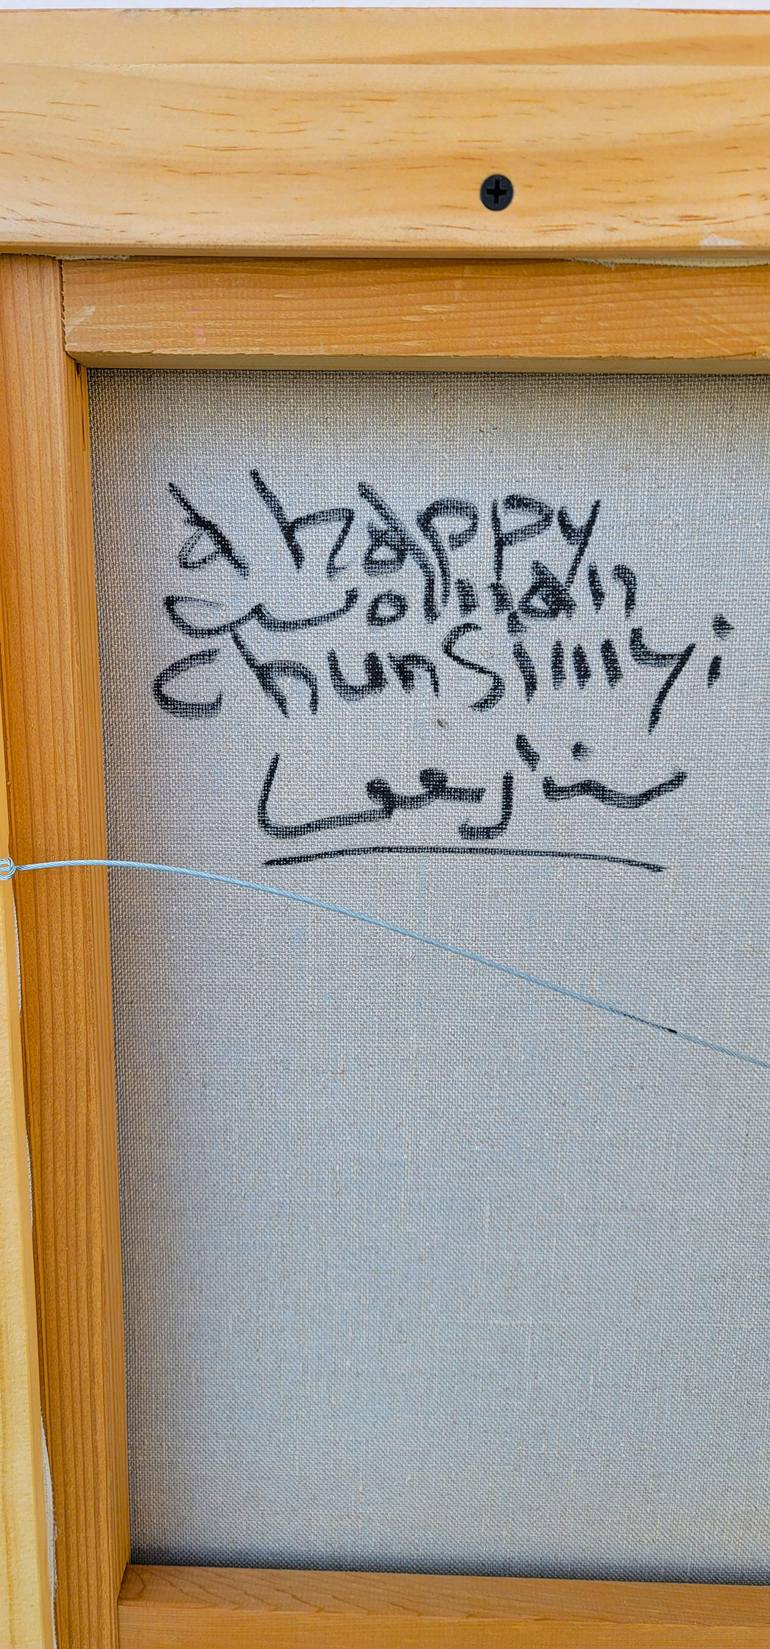 a happy
woman
chunsimyi
Leejin